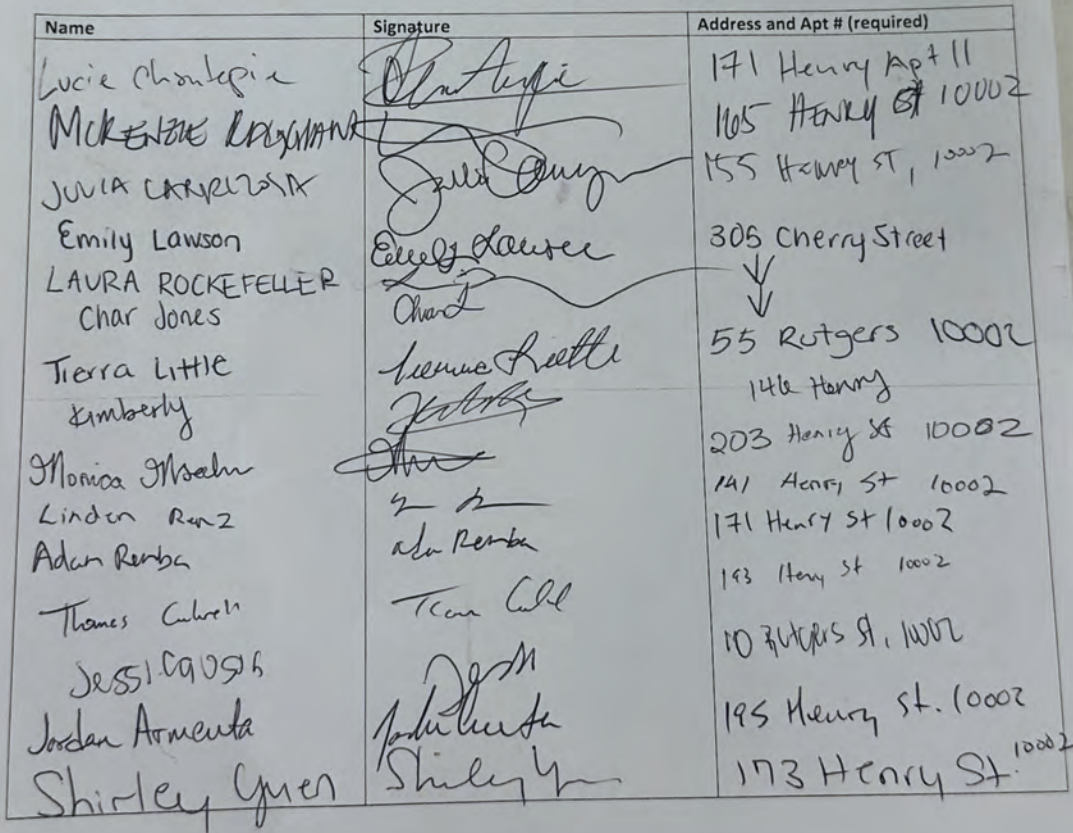 Name Signature Address and Apt # (required)
Lucie Chantepie 171 Henry Apt 11
MCKENZIE 165 HENRY St 10002
JULIA CARRIZOSA 155 Henry ST, 10002
Emily Lawson Emily Lawson 305 Cherry Street
LAURA ROCKEFELLER
Char Jones Char J
Tierra Little 55 Rutgers 10002
Kimberly 146 Henry
Monica 203 Henry St 10002
Linden Renz 141 Henry St 10002
Adam Remba Adam Remba 171 Henry St 10002
Thomas 193 Henry St 10002
Jessica 10 Rutgers St, 10002
Jordan Armenta 195 Henry St. 10002
Shirley Yuen Shirley Y 173 Henry St. 10002